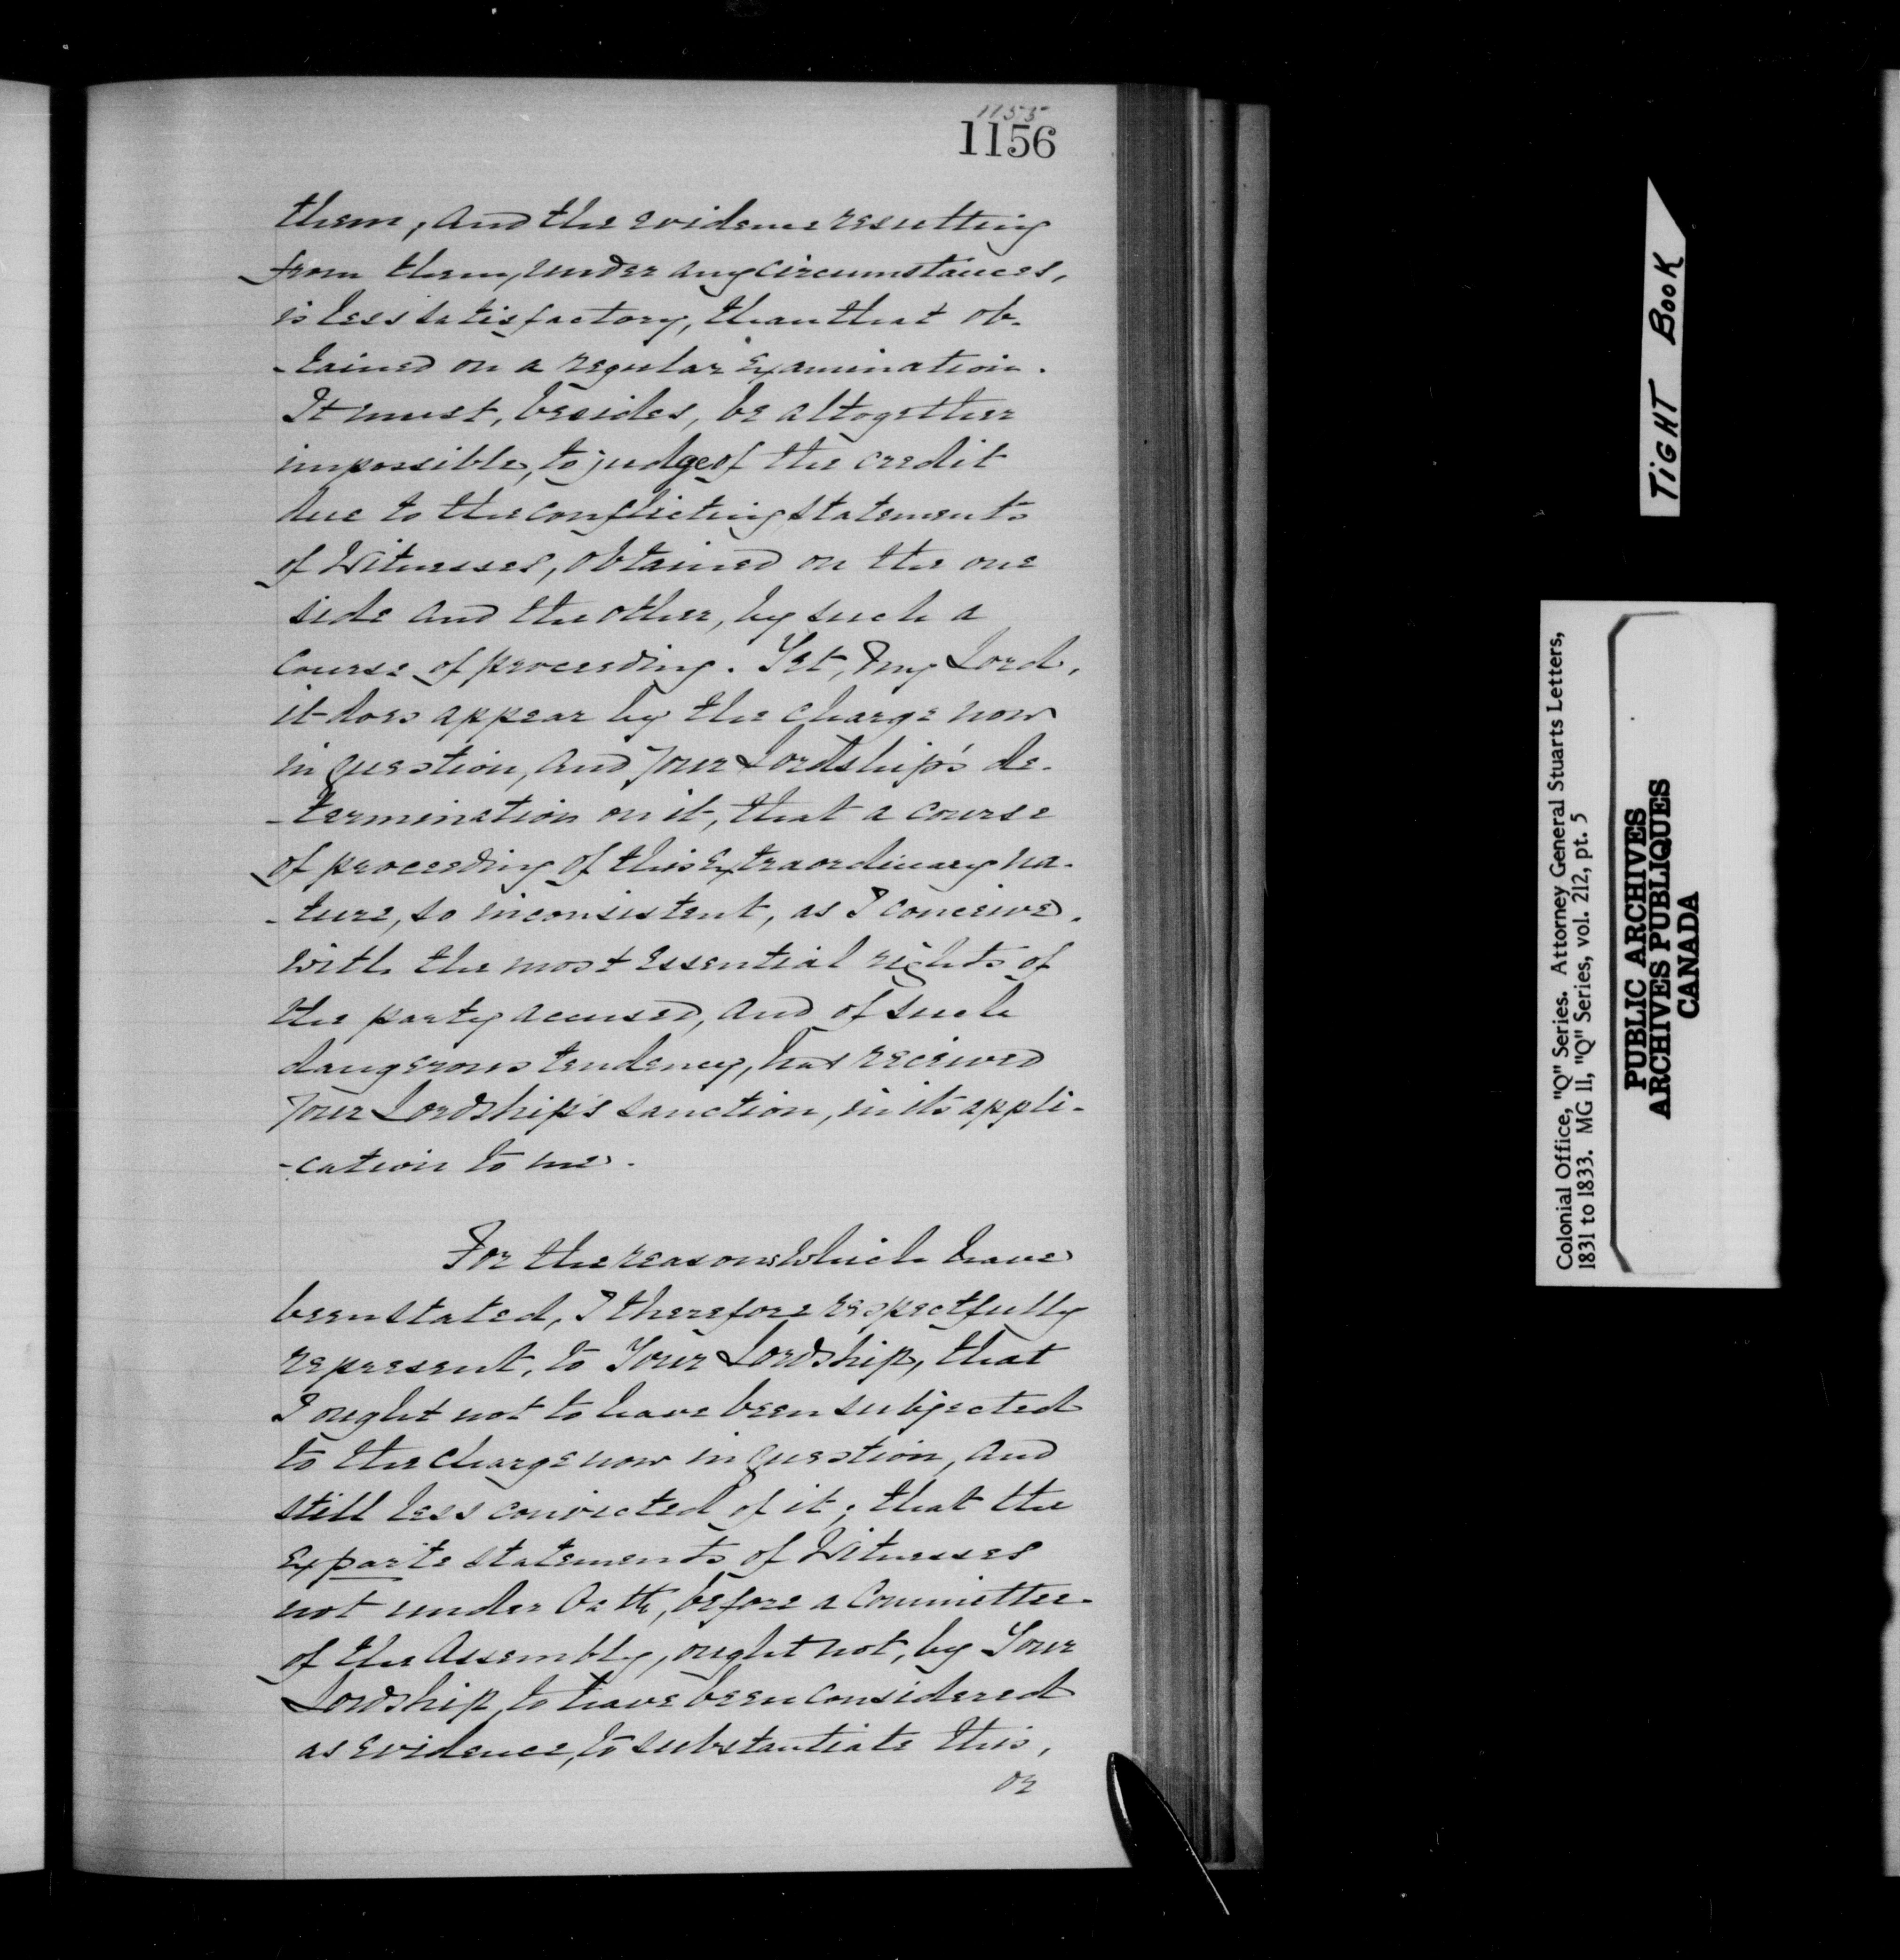 1155
1156
them, and the evidence resulting
from them, under any circumstances,
is less satisfactory, than that ob-
-tained on a regular Examination.
It must, besides, be altogether
impossible, to judge of the credit
due to the conflicting statements
of Witnesses, obtained on the one
side and the other, by such a
course of proceeding. Yet, My Lord,
it does appear by the charge now
in question, and Your Lordship's de-
-termination on it, that a course
of proceeding of this Extraordinary na-
-ture, so inconsistent, as I conceive,
with the most essential rights of
the party accused, and of such
dangerous tendency, has received
Your Lordship's sanction, in its appli-
-cation to me.
For the reasons which have
been stated, I therefore respectfully
represent, to Your Lordship, that
I ought not to have been subjected
to the charge now in question, and
still less convicted of it; that the
Ex parte statements of Witnesses
not under Oath, before a Committee
of the Assembly, ought not, by Your
Lordship, to have been considered
as evidence, to substantiate this,
or
TIGHT BOOK
Colonial Office, "Q" Series. Attorney General Stuarts Letters,
1831 to 1833. MG 11, "Q" Series, vol. 212, pt. 5
PUBLIC ARCHIVES
ARCHIVES PUBLIQUES
CANADA